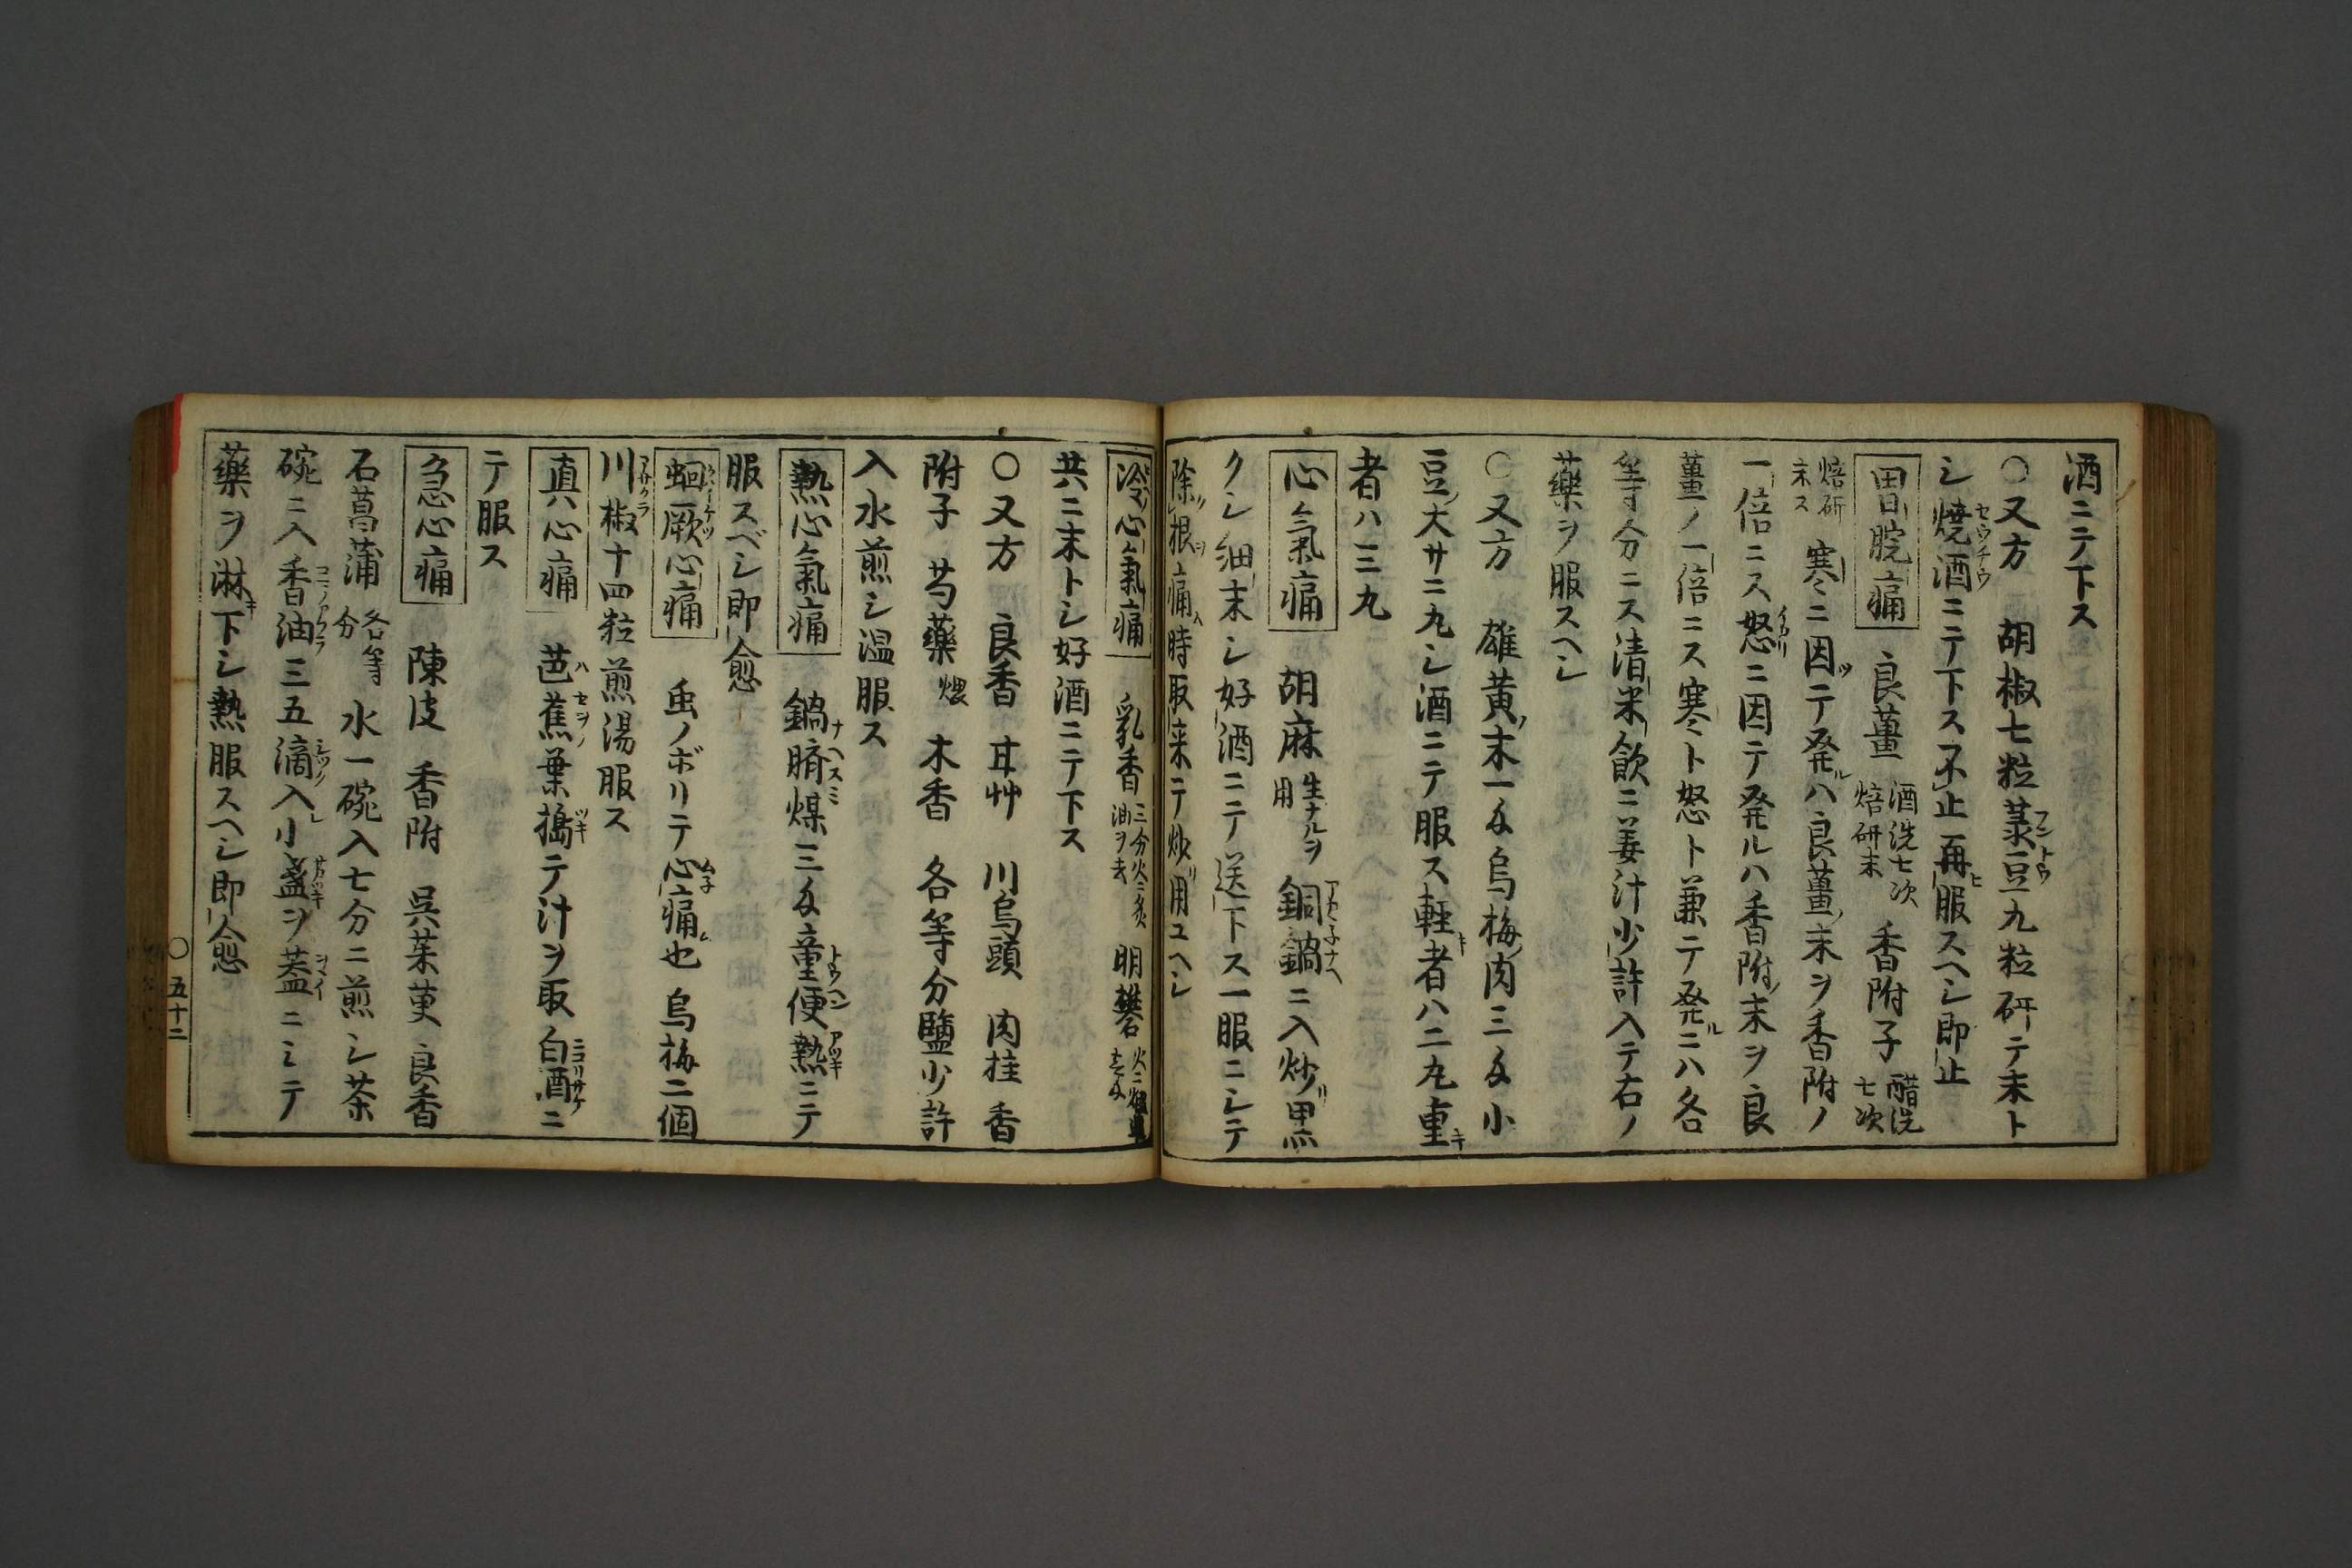 酒ニテ下ス
〇又方 胡椒七粒菉豆九粒研テ末ト
シ燒酒ニテ下ス不止再服スヘシ即止
胃脘痛 良薑 酒洗七次焙研末 香附子 醋洗七次
焙研末ス 寒ニ因テ発ルハ良薑末ヲ香附ノ
一倍ニス怒ニ因テ発ルハ香附末ヲ良
薑ノ一倍ニス寒ト怒ト兼テ発ルニハ各
等分ニス清米飲ニ姜汁少許入テ右ノ
藥ヲ服スヘシ
〇又方 雄黄末一匁烏梅肉三匁小
豆大サニ丸シ酒ニテ服ス軽キ者ハ二丸重キ
者ハ三丸
心氣痛 胡麻 生ナルヲ用 銅鍋ニ入炒リ黒
クシ細末シ好酒ニテ送下ス一服ニシテ
除根ヲ痛ム時取来テ炒リ用ユヘシ
冷心氣痛 乳香 三分火ニ炙油ヲ去 明礬 火ニ
共ニ末トシ好酒ニテ下ス
〇又方 良香 甘艸 川烏頭 肉桂 香
附子 芍藥 煨 木香 各等分鹽少許
入水煎シ温服ス
熱心氣痛 鍋臍煤三匁童便熱ニテ
服スベシ即愈
蛔厥心痛 虫ノボリテ心痛ム也 烏梅二個
川椒十四粒煎湯服ス
真心痛 芭蕉葉搗テ汁ヲ取白酒ニ
テ服ス
急心痛 陳皮 香附 呉茱萸 良香
石菖蒲 各等分 水一碗入七分ニ煎シ茶
碗ニ入香油三五滴入レ小盞ヲ蓋ニシテ
藥ヲ淋キ下シ熱服スヘシ即愈
〇五十二